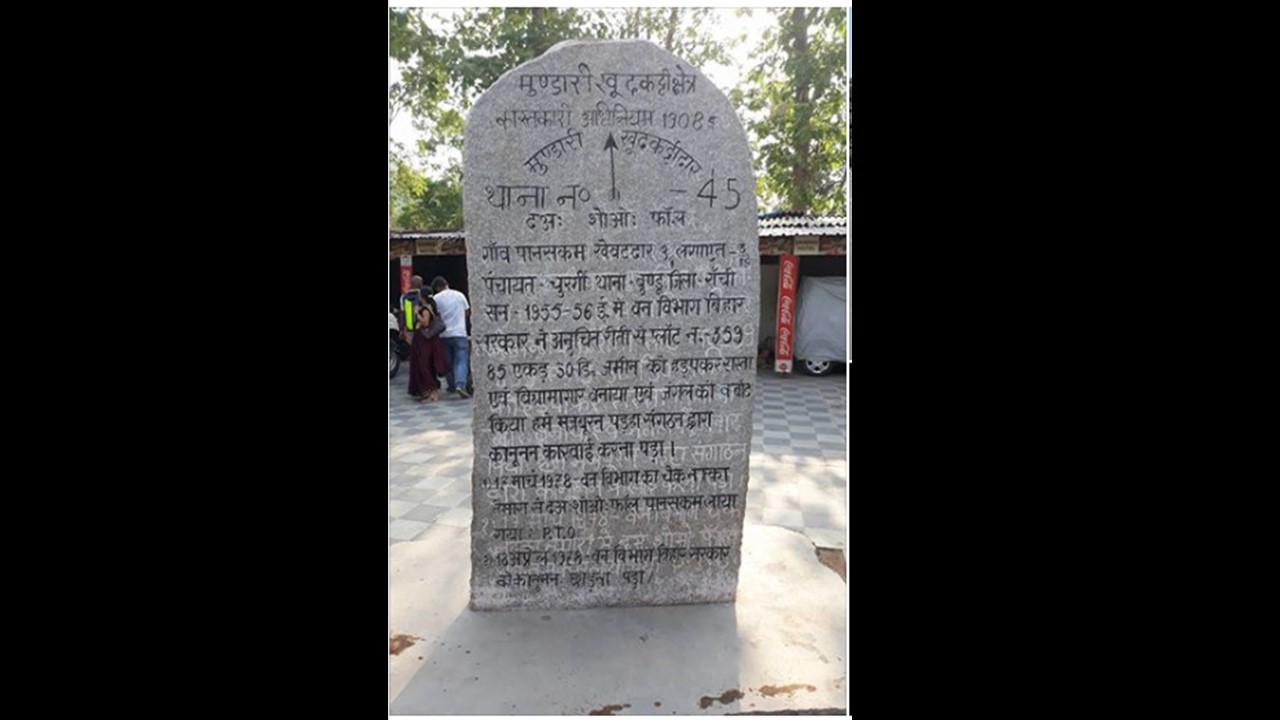 मुण्डारी खूटकट्टी क्षेत्र
कास्तकारी अधिनियम 1908 ई
मुण्डारी खुटकट्टीदार
थाना न० - 45
दअः शोओः फॉल
गाँव पानसकम खेवटदार 3,
पंचायत - चुरगीं थाना - बुण्डू जिला - राँची
सन - 1955-56 ई. में वन विभाग बिहार
सरकार ने अनुचित रीती से प्लॉट न.- 359
85 एकड़ 30 डि. जमीन को हड़पकर रास्ता
एवं विश्रामागार बनाया एवं जंगल को
किया हमें पड़हा संगठन द्वारा
कानूनन कारवाई करना पड़ा।
17 मार्च 1978 - वन विभाग का चेक नाका
दअ शोओः फॉल पानसकम लाया
गया : P.T.O
18 अप्रेल 1978 - वन विभाग बिहार सरकार
को कानुनन छोड़ना पड़ा/